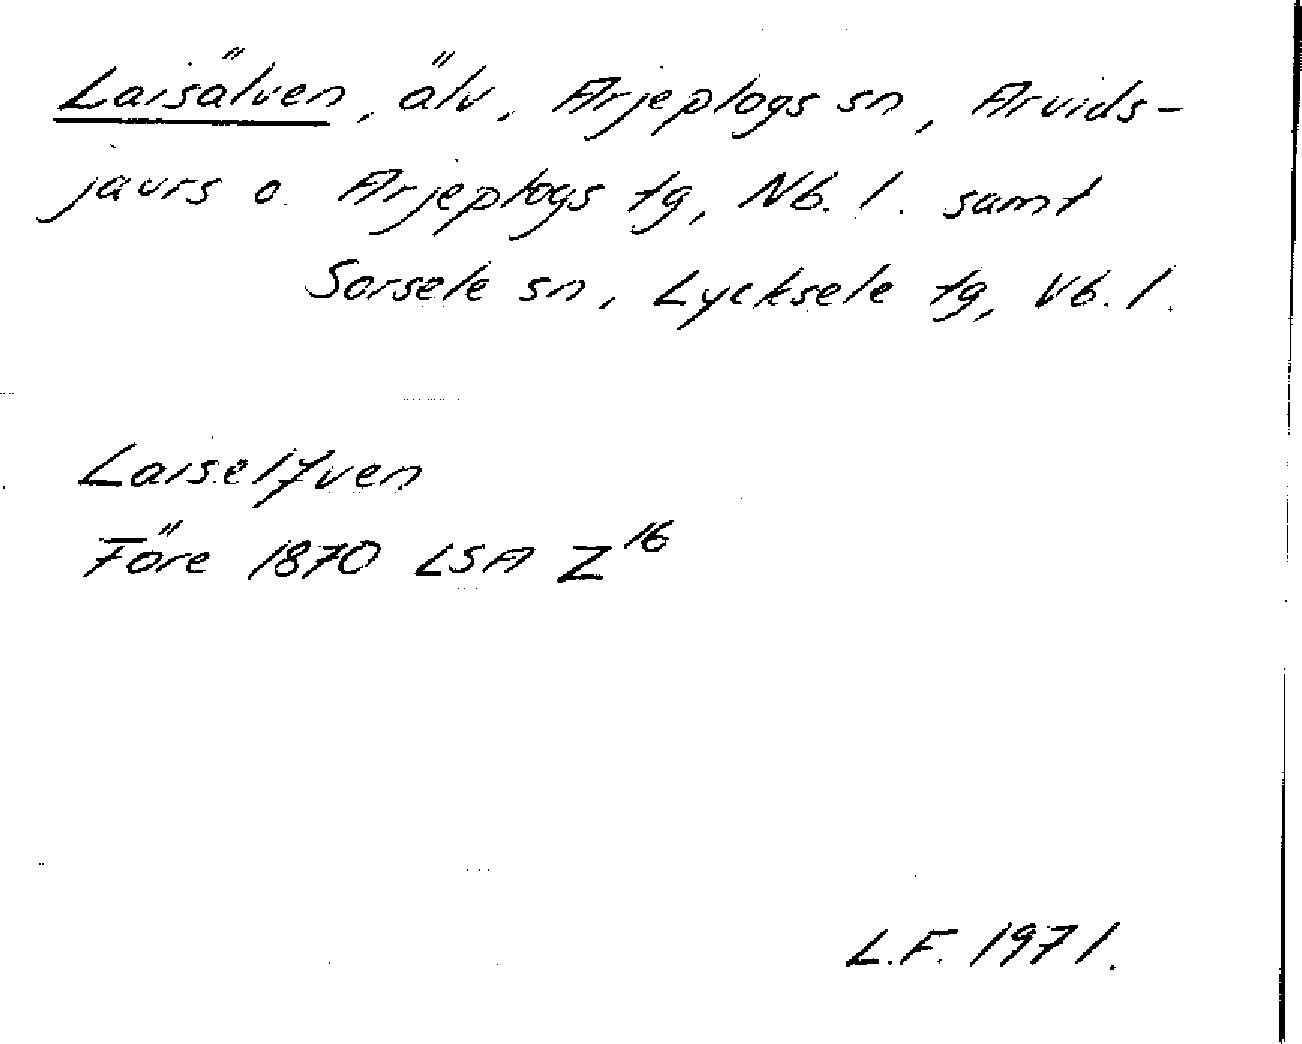 Laisälven, älv, Arjeplogs sn, Arvids-
jaurs o. Arjeplogs tg, Nb. l. samt
Sorsele sn, Lycksele tg, Vb. l.
Laiselfven
Före 1870 LSA Z16
L.F. 1971.